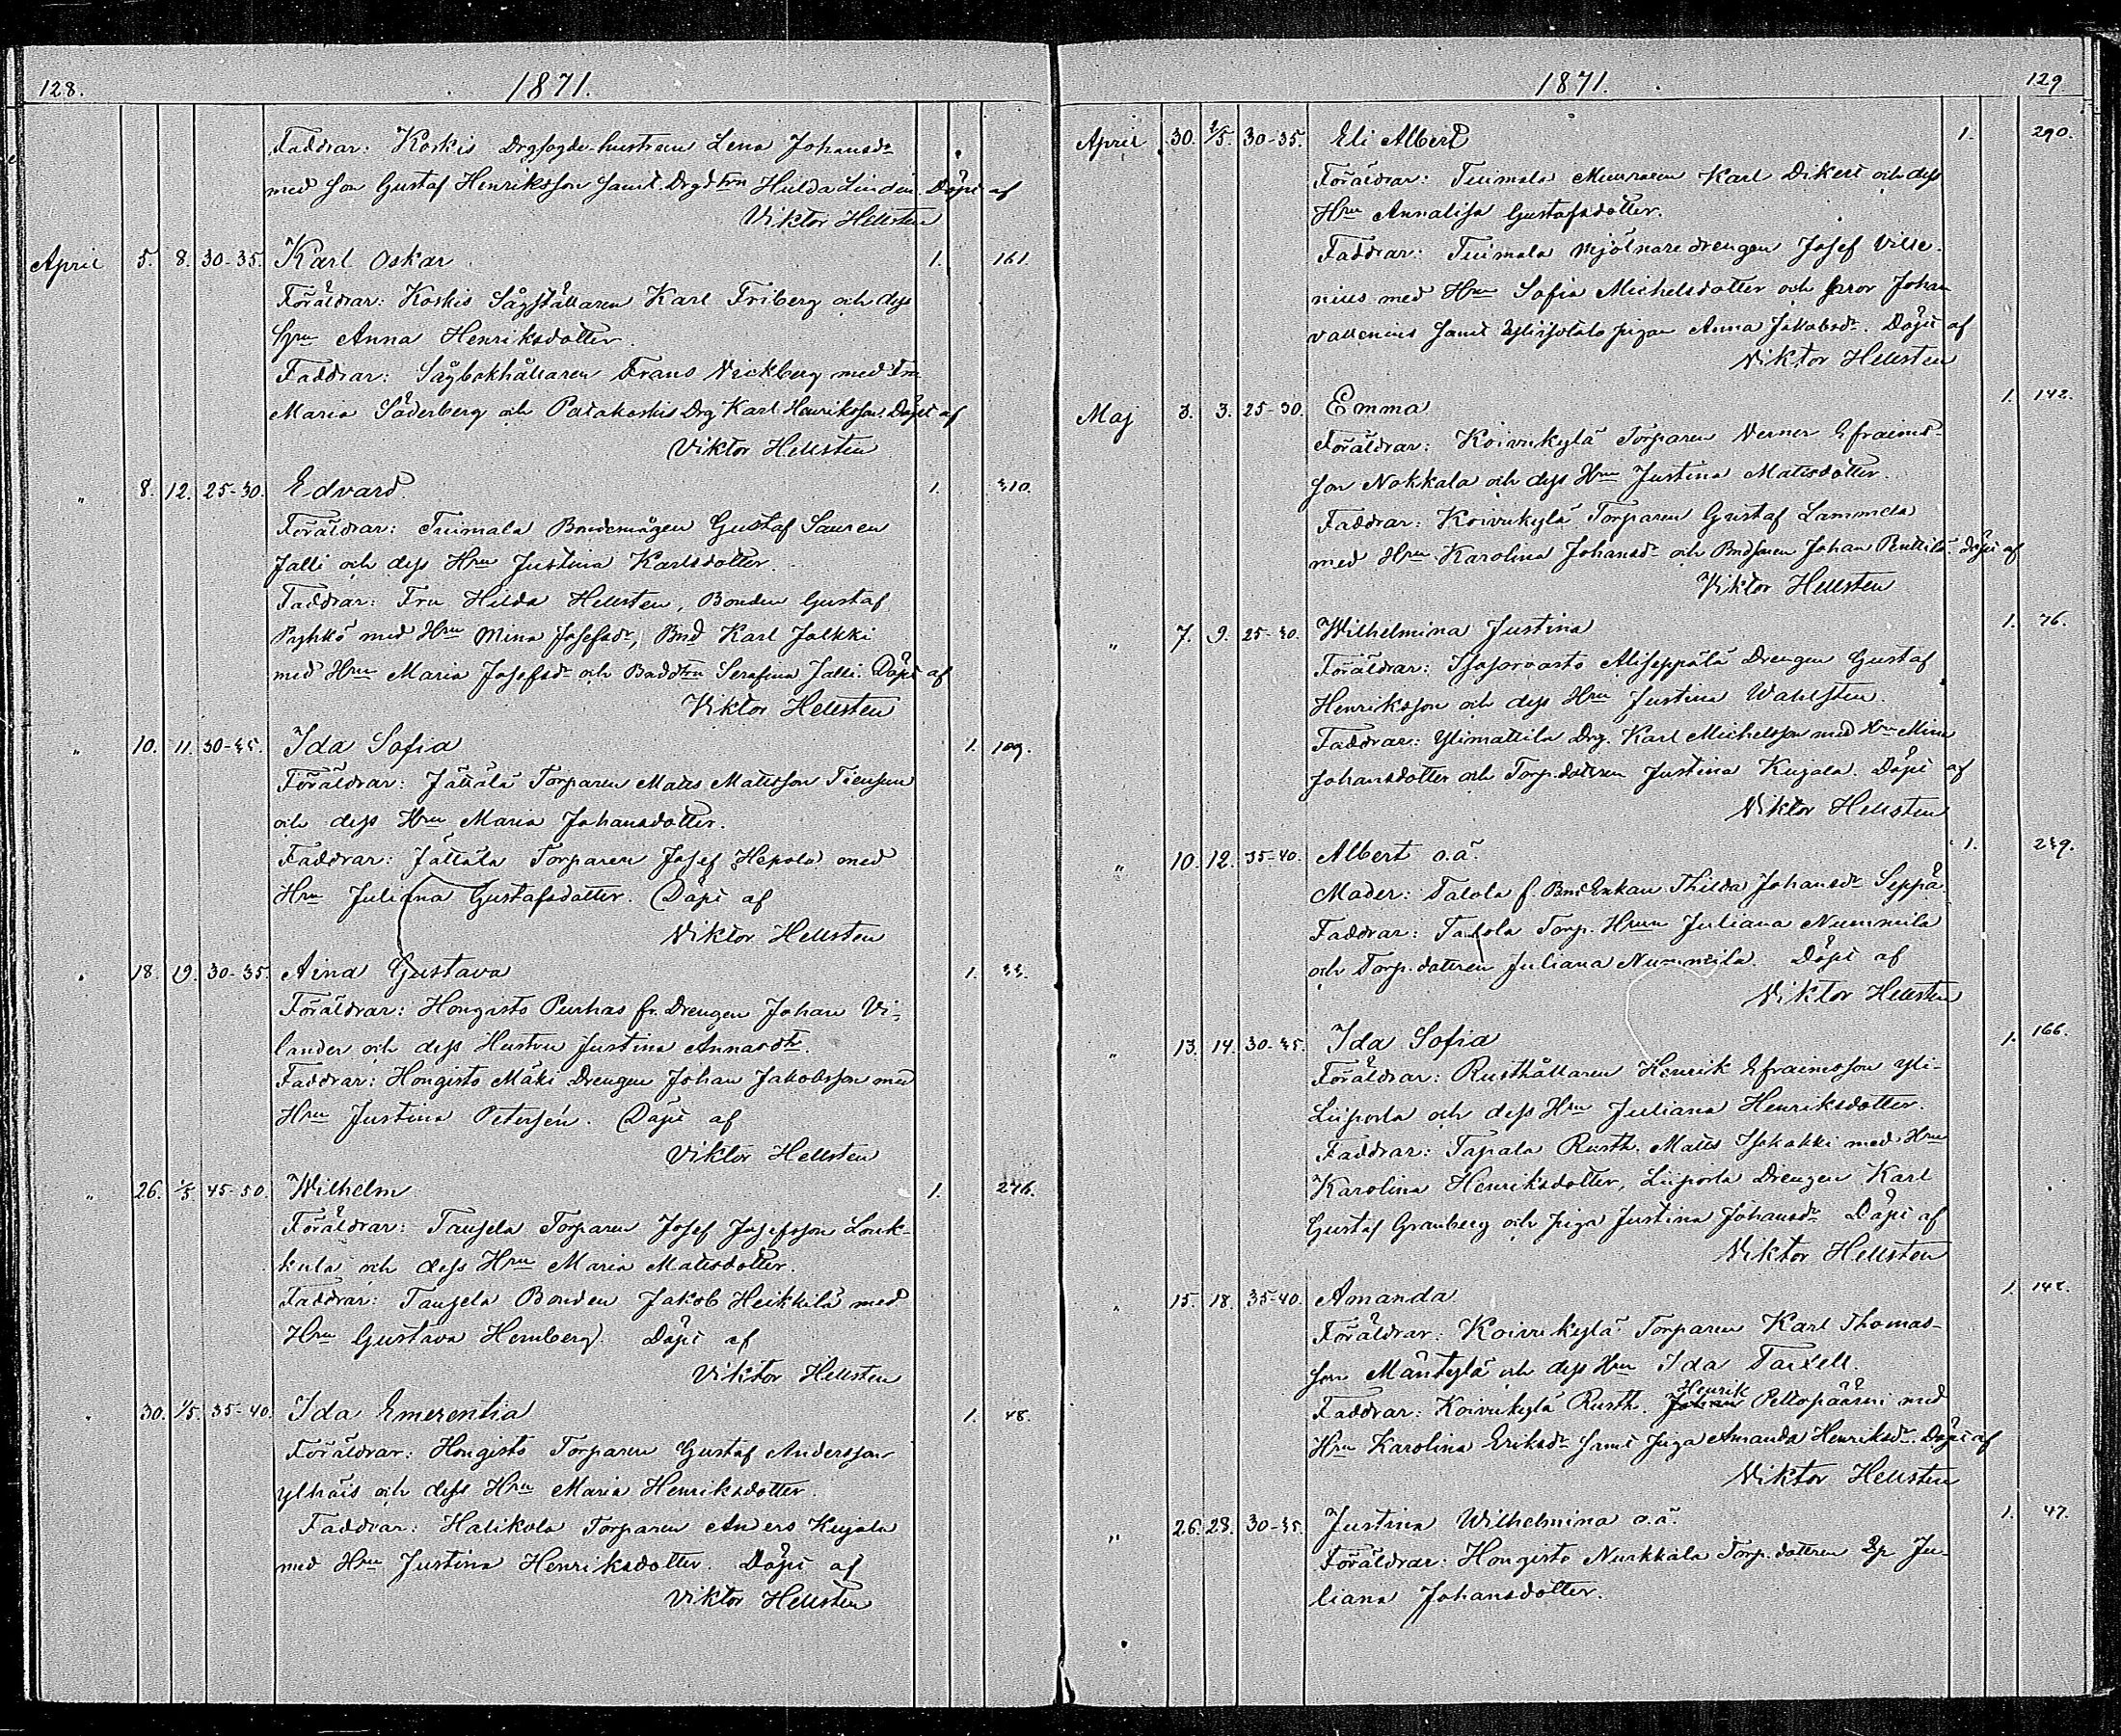 128.
1871.
Faddrar: Koskis Drgfogde-hustrun Lena Johansdr
med son Gustaf Henriksson samt Drgdtrn Hulda Lindén. Döpt af
Viktor Hellsten
April 5. 8. 30-35. Karl Oskar 1. 161.
Föräldrar: Koskis Sågställaren Karl Friberg och dess
Hru Anna Henriksdotter.
Faddrar: Sågbokhållaren Frans Vickberg med Fru
Maria Söderberg och Patakoskis Drg Karl Henriksson. Döpt af
Viktor Hellsten
" 8. 12. 25-30. Edvard. 1. 310.
Föräldrar: Tuimala Bondemågen Gustaf Sauren
Jalli och dess Hru Justina Karlsdotter.
Faddrar: Fru Hilda Hellsten, Bonden Gustaf
Pyhkö med Hru Mina Josefsdr, Bnd Karl Jalkki
med Hru Maria Josefsdr och Bnddtrn Serafina Jalli. Döpt af
Viktor Hellsten
" 10. 11. 30-35. Ida Sofia 1. 109.
Föräldrar: Jättälä Torparen Matts Mattsson Tiensuu
och dess Hru Maria Johansdotter.
Faddrar: Jättälä Torparen Josef Hepola med
Hru Juliana Gustafsdotter. Döpt af
Viktor Hellsten
" 18. 19. 30-35. Aina Gustava 1. 33.
Föräldrar: Hongisto Purhas fr. Drengen Johan Vi-
lander och dess Hustru Justina Annasdtr.
Faddrar: Hongisto Mäki Drengen Johan Jakobsson med
Hru Justina Petersén. Döpt af
Viktor Hellsten
" 26. 1/5 45-50. Wilhelm 1. 276.
Föräldrar: Taujela Torparen Josef Josefsson Louk-
kula och dess Hru Maria Mattsdotter.
Faddrar: Taujela Bonden Jakob Heikkilä med
Hru Gustava Hemberg. Döpt af
Viktor Hellsten
" 30. 1/5. 35-40. Ida Emerentia 1. 48.
Föräldrar: Hongisto Torparen Gustaf Andersson
Ylhäis och dess Hru Maria Henriksdotter.
Faddrar: Halikola Torparen Anders Kujala
med Hru Justina Henriksdotter. Döpt af
Viktor Hellsten
1871.
129
April 30. 2/5. 30-35. Eli Albert 1. 290.
Föräldrar: Tuimala Muuraren Karl Dikert och dess
Hru Annalisa Gustafsdotter.
Faddrar: Tuimala Mjölnaredrengen Josef Ville-
nius med Hru Sofia Michelsdotter och Johan
Vallenius samt pigan Anna Jakobsdr. Döpt af
Viktor Hellsten
Maj 3. 3. 25-30. Emma 1. 142.
Föräldrar: Koivukylä Torparen Verner Efraims-
son Nokkala och dess Hru Justina Mattsdotter.
Faddrar: Koivukylä Torparen Gustaf Lammela
med Hru Karolina Johansdr och Bndsonen Johan Penttilä. Döpt af
Viktor Hellsten
" 7. 9. 25-30. Wilhelmina Justina 1. 76.
Föräldrar: Isosorvasto Aliseppälä Drengen Gustaf
Henriksson och dess Hru Justina Wahlsten.
Faddrar: Ylimattila Drg. Karl Michelsson med Hru Mina
Johansdotter och Torp.dottren Justina Kujala. Döpt af
Viktor Hellsten
" 10. 12. 35-40. Albert o.ä. 1. 249.
Moder: Talola f. Bnd Enkan Thilda Johansdr Seppä.
Faddrar: Talola Torp. Hrun Juliana Nummila
och Torp.dottren Juliana Nummila. Döpt af
Viktor Hellsten
" 13. 14. 30-35. Ida Sofia 1. 166.
Föräldrar: Rusthållaren Henrik Efraimsson Yli-
Liiporla och dess Hru Juliana Henriksdotter.
Faddrar: Tapala Rusth. Matts Isokakki med Hru
Karolina Henriksdotter, Liiporla Drengen Karl
Gustaf Granberg och piga Justina Johansdr Döpt af
Viktor Hellsten
" 15. 18. 35-40. Amanda 1. 142.
Föräldrar: Koivukylä Torparen Karl Thomas-
son Mäntylä och dess Hru Ida Taxell.
Henrik
Faddrar: Koivukylä Rusth. Johan Peltopäärni med
Hru Karolina Eriksdr samt Piga Amanda Henriksdr. Döpt af
Viktor Hellsten
" 26. 28. 30-35. Justina Wilhelmina o.ä. 1. 47.
Föräldrar: Hongisto Nurkkala Torp.dottren Ju-
liana Johansdotter.